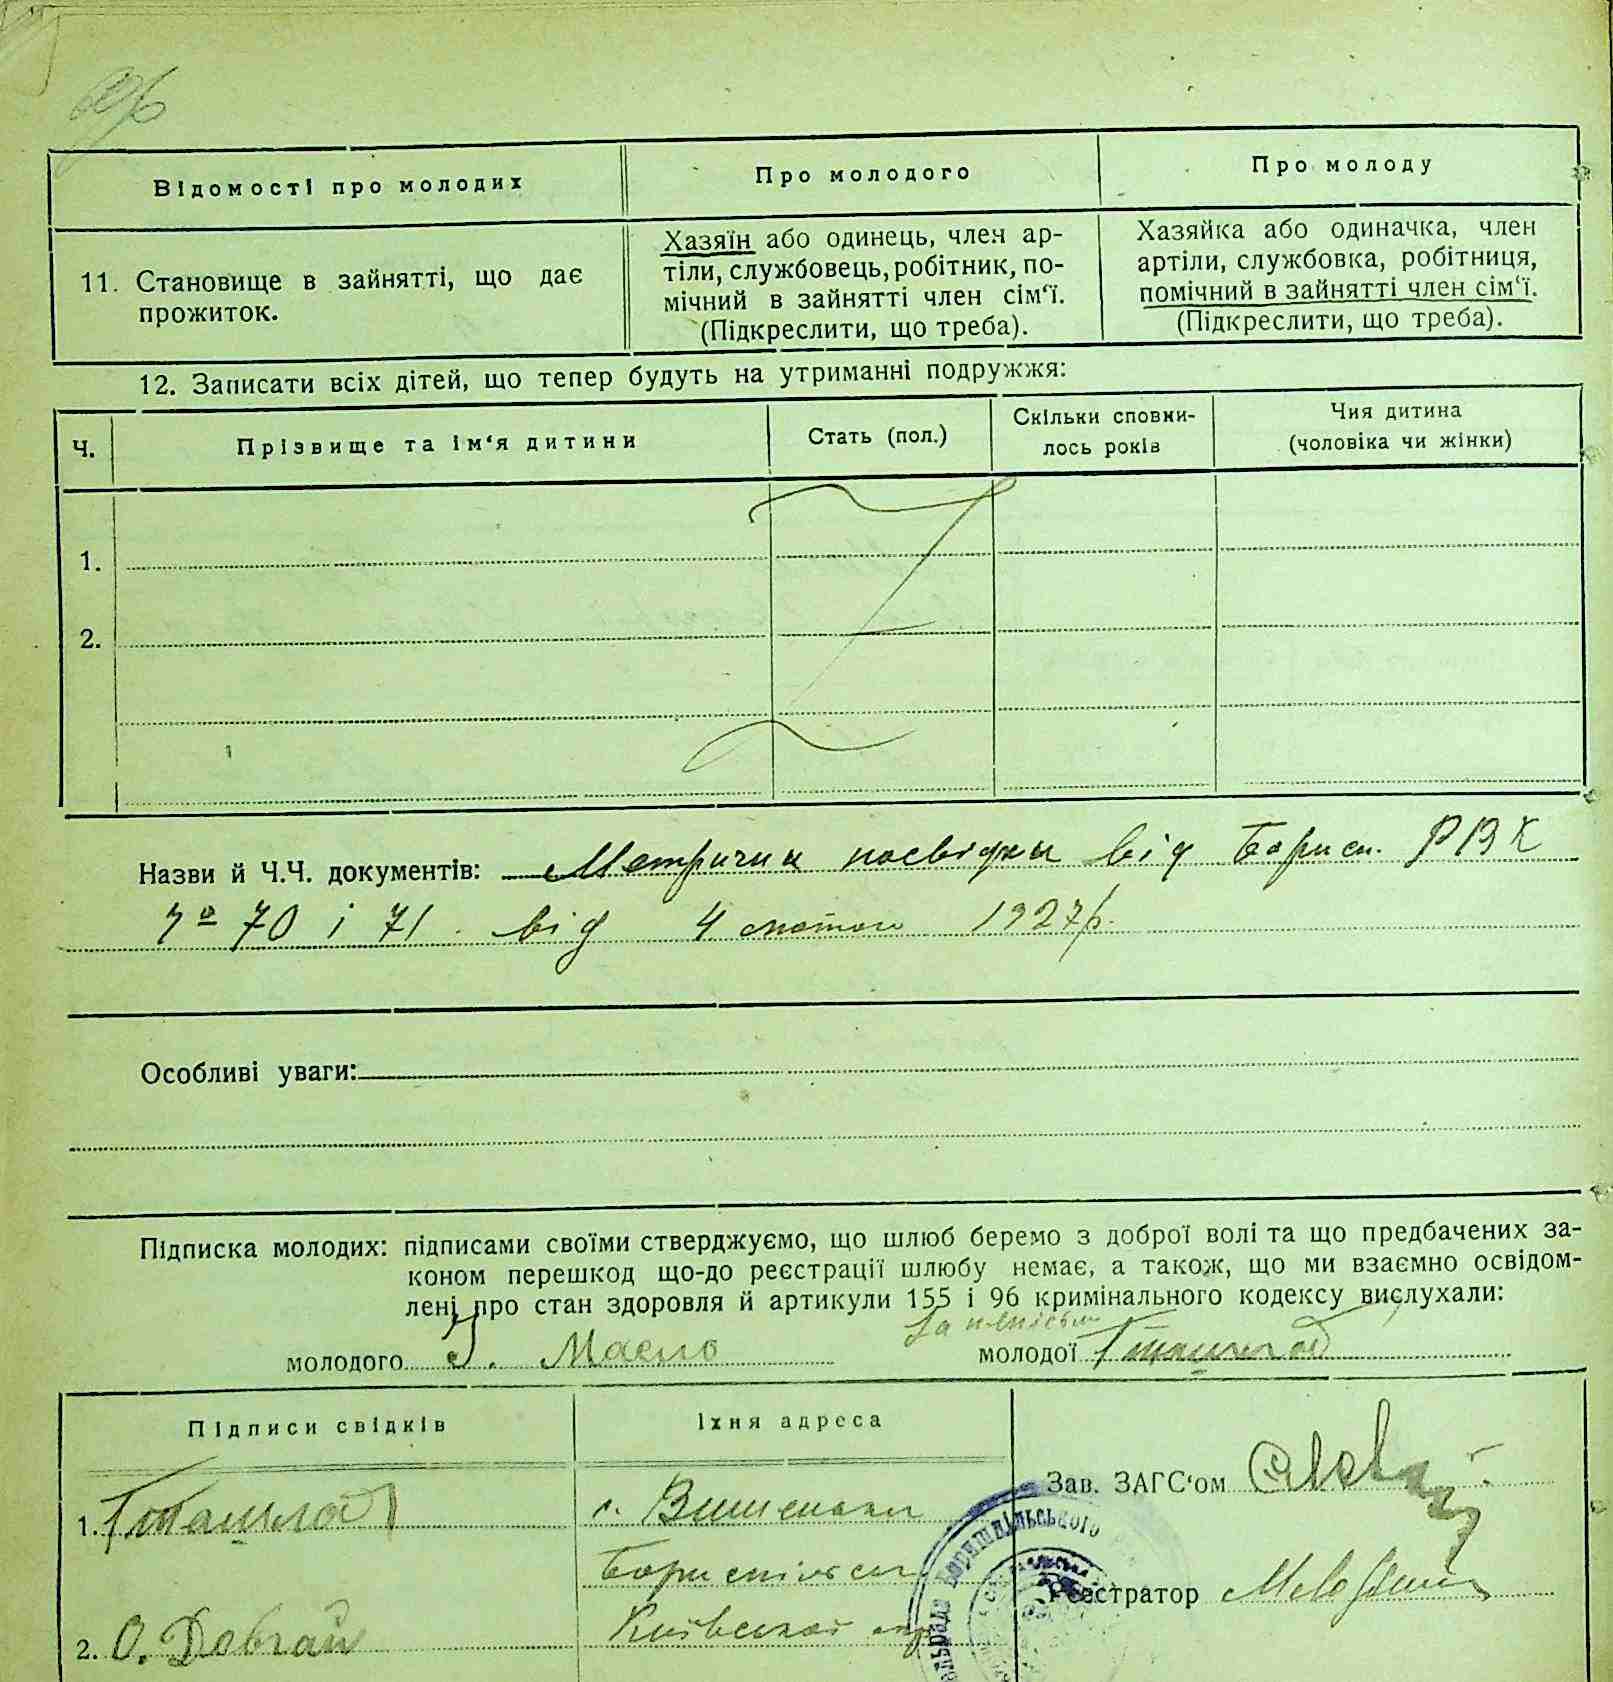 Відомості про молодих
Про молодого
Про молоду
11. Становище в зайнятті, що дає
прожиток.
Хазяїн або одинець, член ар-
тіли, службовець, робітник, по-
мічний в зайнятті член сім'ї.
(Підкреслити, що треба).
Хазяйка або одиначка, член
артіли, службовка, робітниця,
помічний в зайнятті член сім'ї.
(Підкреслити, що треба).
12. Записати всіх дітей, що тепер будуть на утриманні подружжя:
Ч.
Прізвище та ім'я дитини
Стать (пол.)
Скільки сповни-
лось років
Чия дитина
(чоловіка чи жінки)
1.
2.
Назви й Ч.Ч. документів: Метричні посвідки від Борисп. РВК
70 і 71 від 4 лютого 1927 р.
Особливі уваги:
Підписка молодих: підписами своїми стверджуємо, що шлюб беремо з доброї волі та що предбачених за-
коном перешкод що-до реєстрації шлюбу немає, а також, що ми взаємно освідом-
лені про стан здоровля й артикули 155 і 96 кримінального кодексу вислухали:
молодого Масло
молодої
Підписи свідків
Їхня адреса
1.
с. Вишеньки
Бориспільськ
2. О. Довгаль
Київської окр
Зав. ЗАГС'ом
Реєстратор
Бориспільського